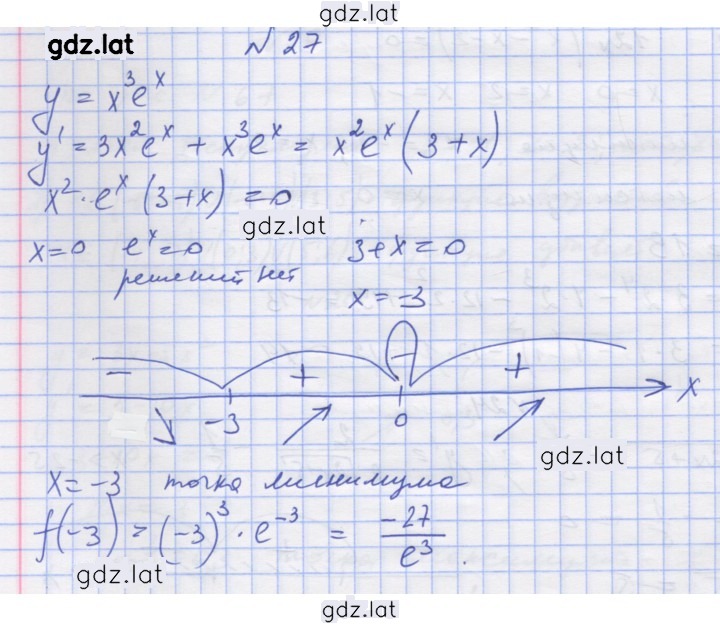 gdz.lat
gdz.lat № 27
y = x³eˣ
y' = 3x²eˣ + x³eˣ = x²eˣ(3+x)
x² · eˣ(3+x) = 0
gdz.lat
x=0 eˣ=0 3+x=0
решений нет
x=-3
− + − +
-3 0 x
gdz.lat
x = -3 точка минимума
f(-3) = (-3)³ · e⁻³ = -27/e³.
gdz.lat
gdz.lat